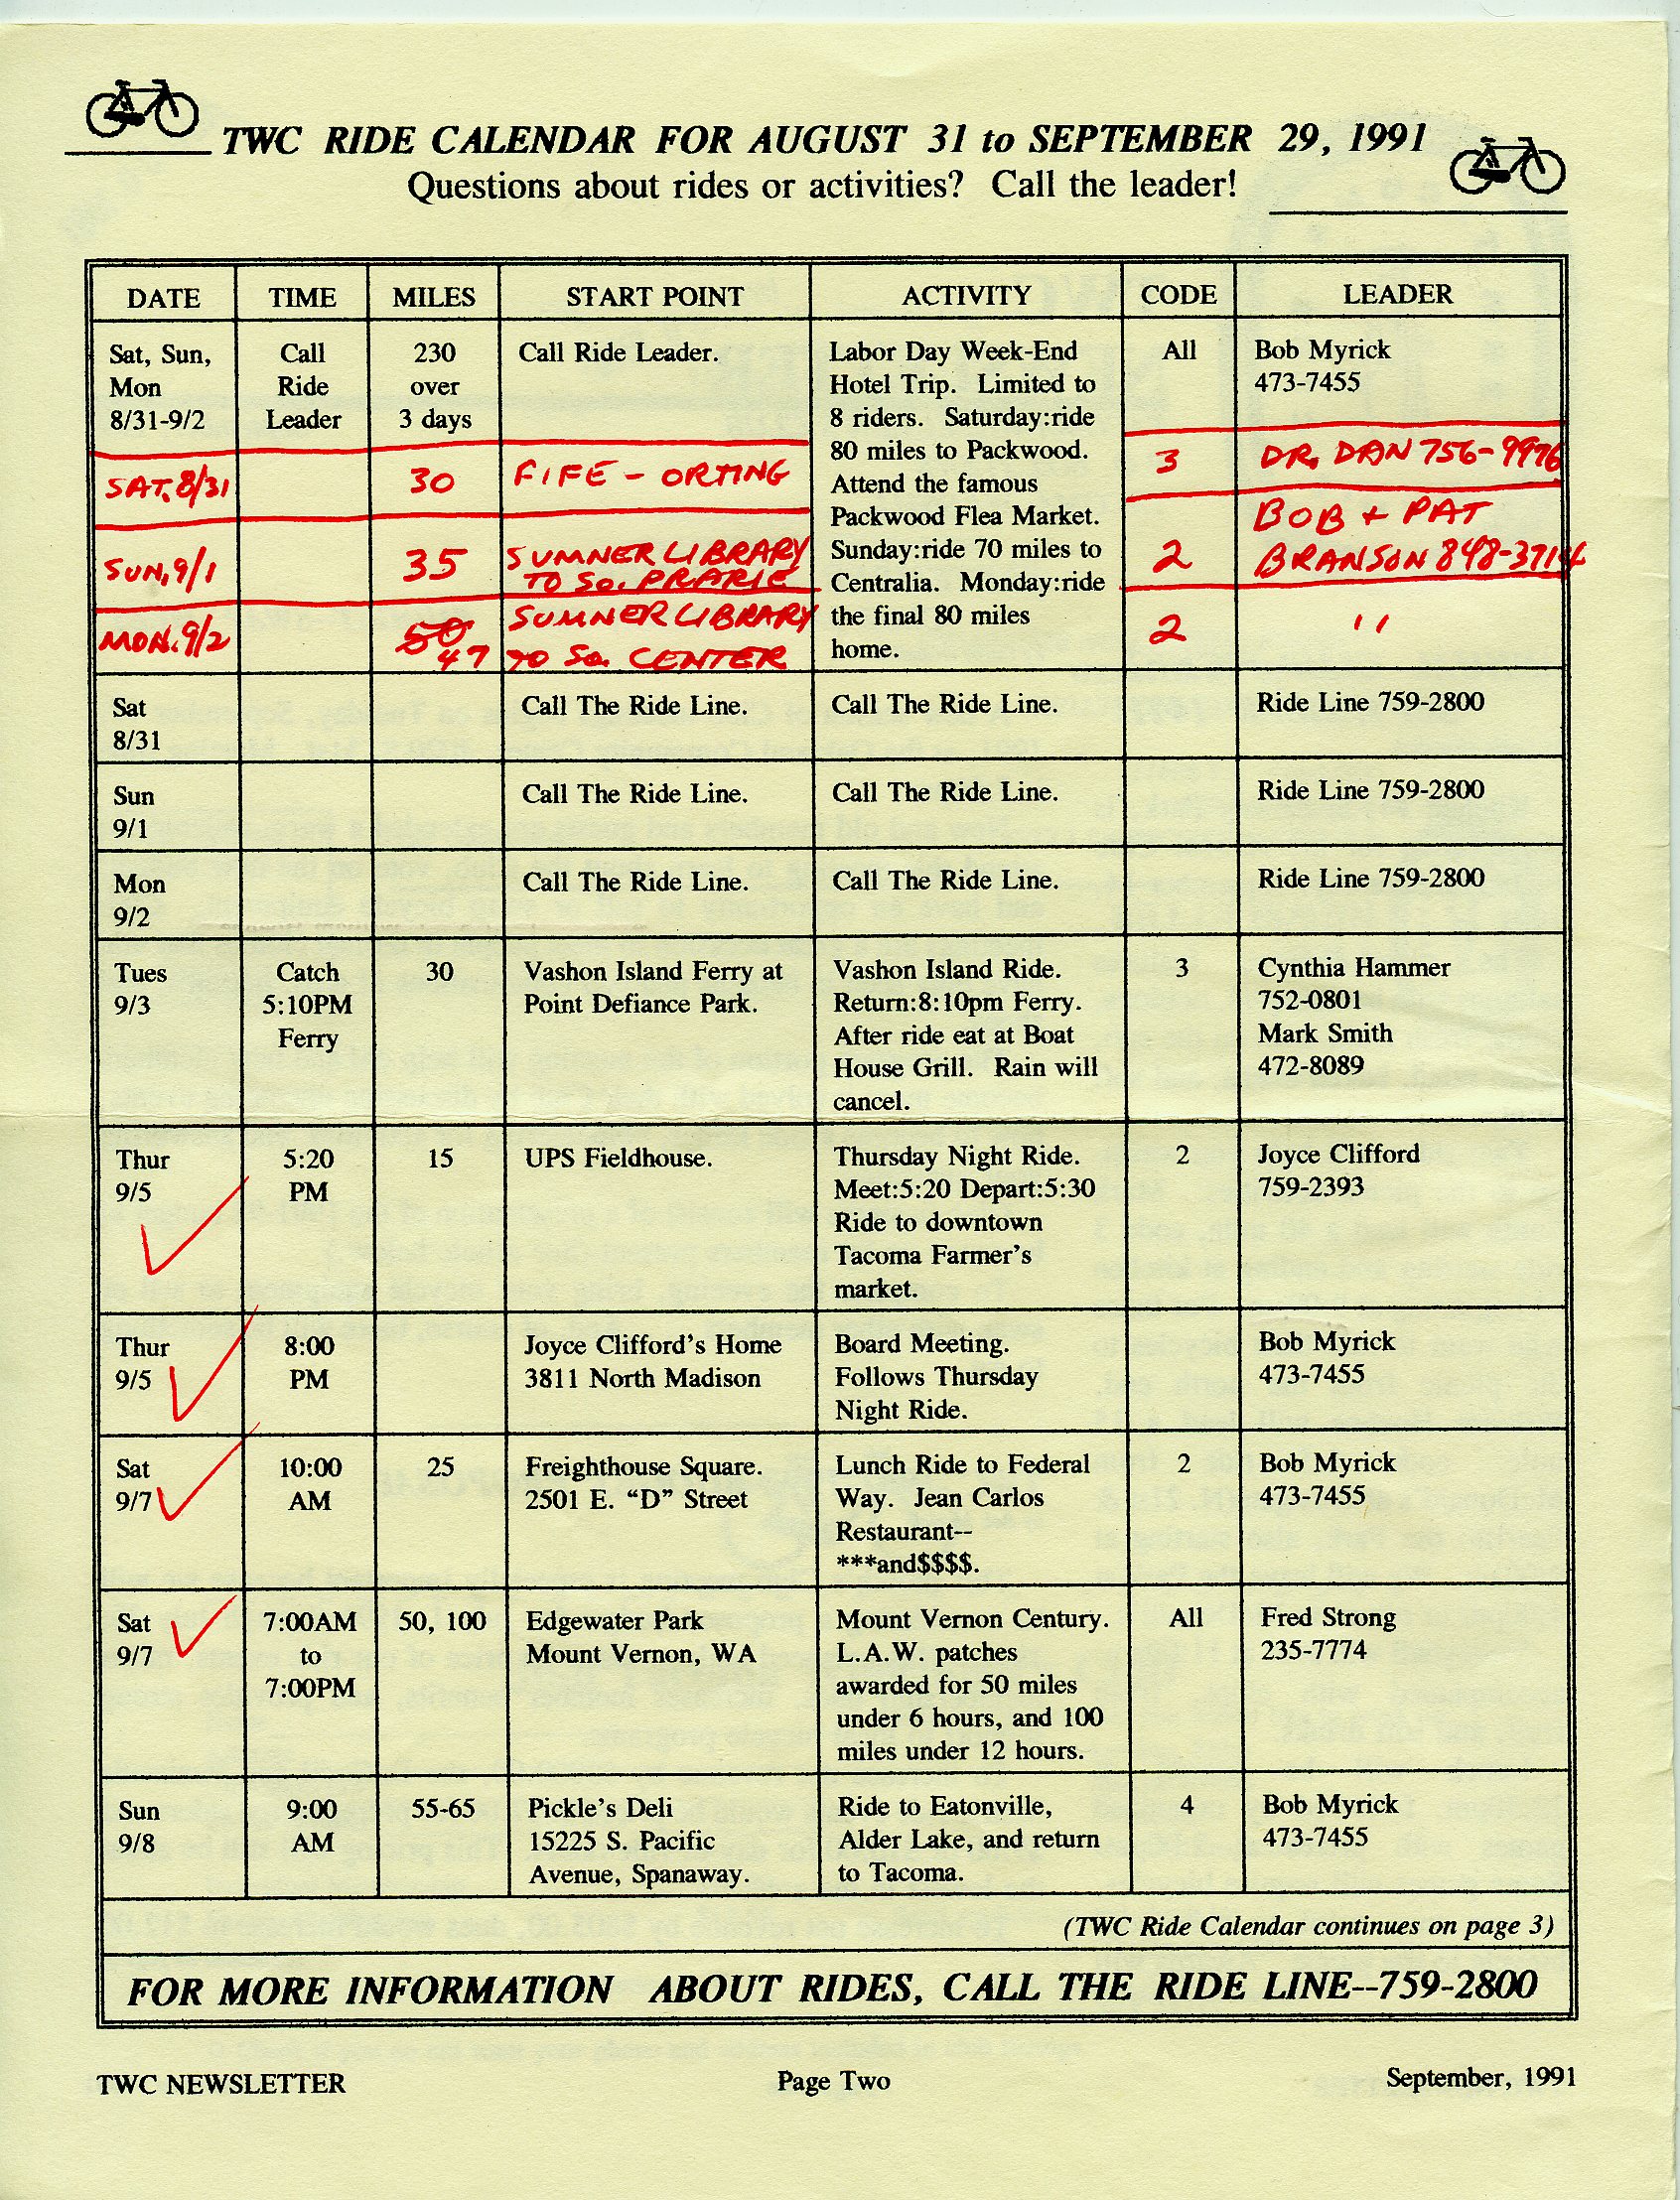 TWC RIDE CALENDAR FOR AUGUST 31 to SEPTEMBER 29, 1991
Questions about rides or activities? Call the leader!
DATE TIME MILES START POINT ACTIVITY CODE LEADER
Sat, Sun, Call 230 Call Ride Leader. Labor Day Week-End All Bob Myrick
Mon Ride over Hotel Trip. Limited to 473-7455
8/31-9/2 Leader 3 days 8 riders. Saturday:ride
80 miles to Packwood.
Attend the famous
Packwood Flea Market.
Sunday:ride 70 miles to
Centralia. Monday:ride
the final 80 miles
home.
SAT. 8/31 30 FIFE - ORTING 3 DR. DAN 756-9976
SUN, 9/1 35 SUMNER LIBRARY 2 BOB + PAT
TO So. PRARIE BRANSON 848-3714
MON. 9/2 50 SUMNER LIBRARY 2 "
47 TO So. CENTER
Sat Call The Ride Line. Call The Ride Line. Ride Line 759-2800
8/31
Sun Call The Ride Line. Call The Ride Line. Ride Line 759-2800
9/1
Mon Call The Ride Line. Call The Ride Line. Ride Line 759-2800
9/2
Tues Catch 30 Vashon Island Ferry at Vashon Island Ride. 3 Cynthia Hammer
9/3 5:10PM Point Defiance Park. Return:8:10pm Ferry. 752-0801
Ferry After ride eat at Boat Mark Smith
House Grill. Rain will 472-8089
cancel.
Thur 5:20 15 UPS Fieldhouse. Thursday Night Ride. 2 Joyce Clifford
9/5 PM Meet:5:20 Depart:5:30 759-2393
Ride to downtown
Tacoma Farmer's
market.
Thur 8:00 Joyce Clifford's Home Board Meeting. Bob Myrick
9/5 PM 3811 North Madison Follows Thursday 473-7455
Night Ride.
Sat 10:00 25 Freighthouse Square. Lunch Ride to Federal 2 Bob Myrick
9/7 AM 2501 E. "D" Street Way. Jean Carlos 473-7455
Restaurant--
***and$$$$.
Sat 7:00AM 50, 100 Edgewater Park Mount Vernon Century. All Fred Strong
9/7 to Mount Vernon, WA L.A.W. patches 235-7774
7:00PM awarded for 50 miles
under 6 hours, and 100
miles under 12 hours.
Sun 9:00 55-65 Pickle's Deli Ride to Eatonville, 4 Bob Myrick
9/8 AM 15225 S. Pacific Alder Lake, and return 473-7455
Avenue, Spanaway. to Tacoma.
(TWC Ride Calendar continues on page 3)
FOR MORE INFORMATION ABOUT RIDES, CALL THE RIDE LINE--759-2800
TWC NEWSLETTER Page Two September, 1991